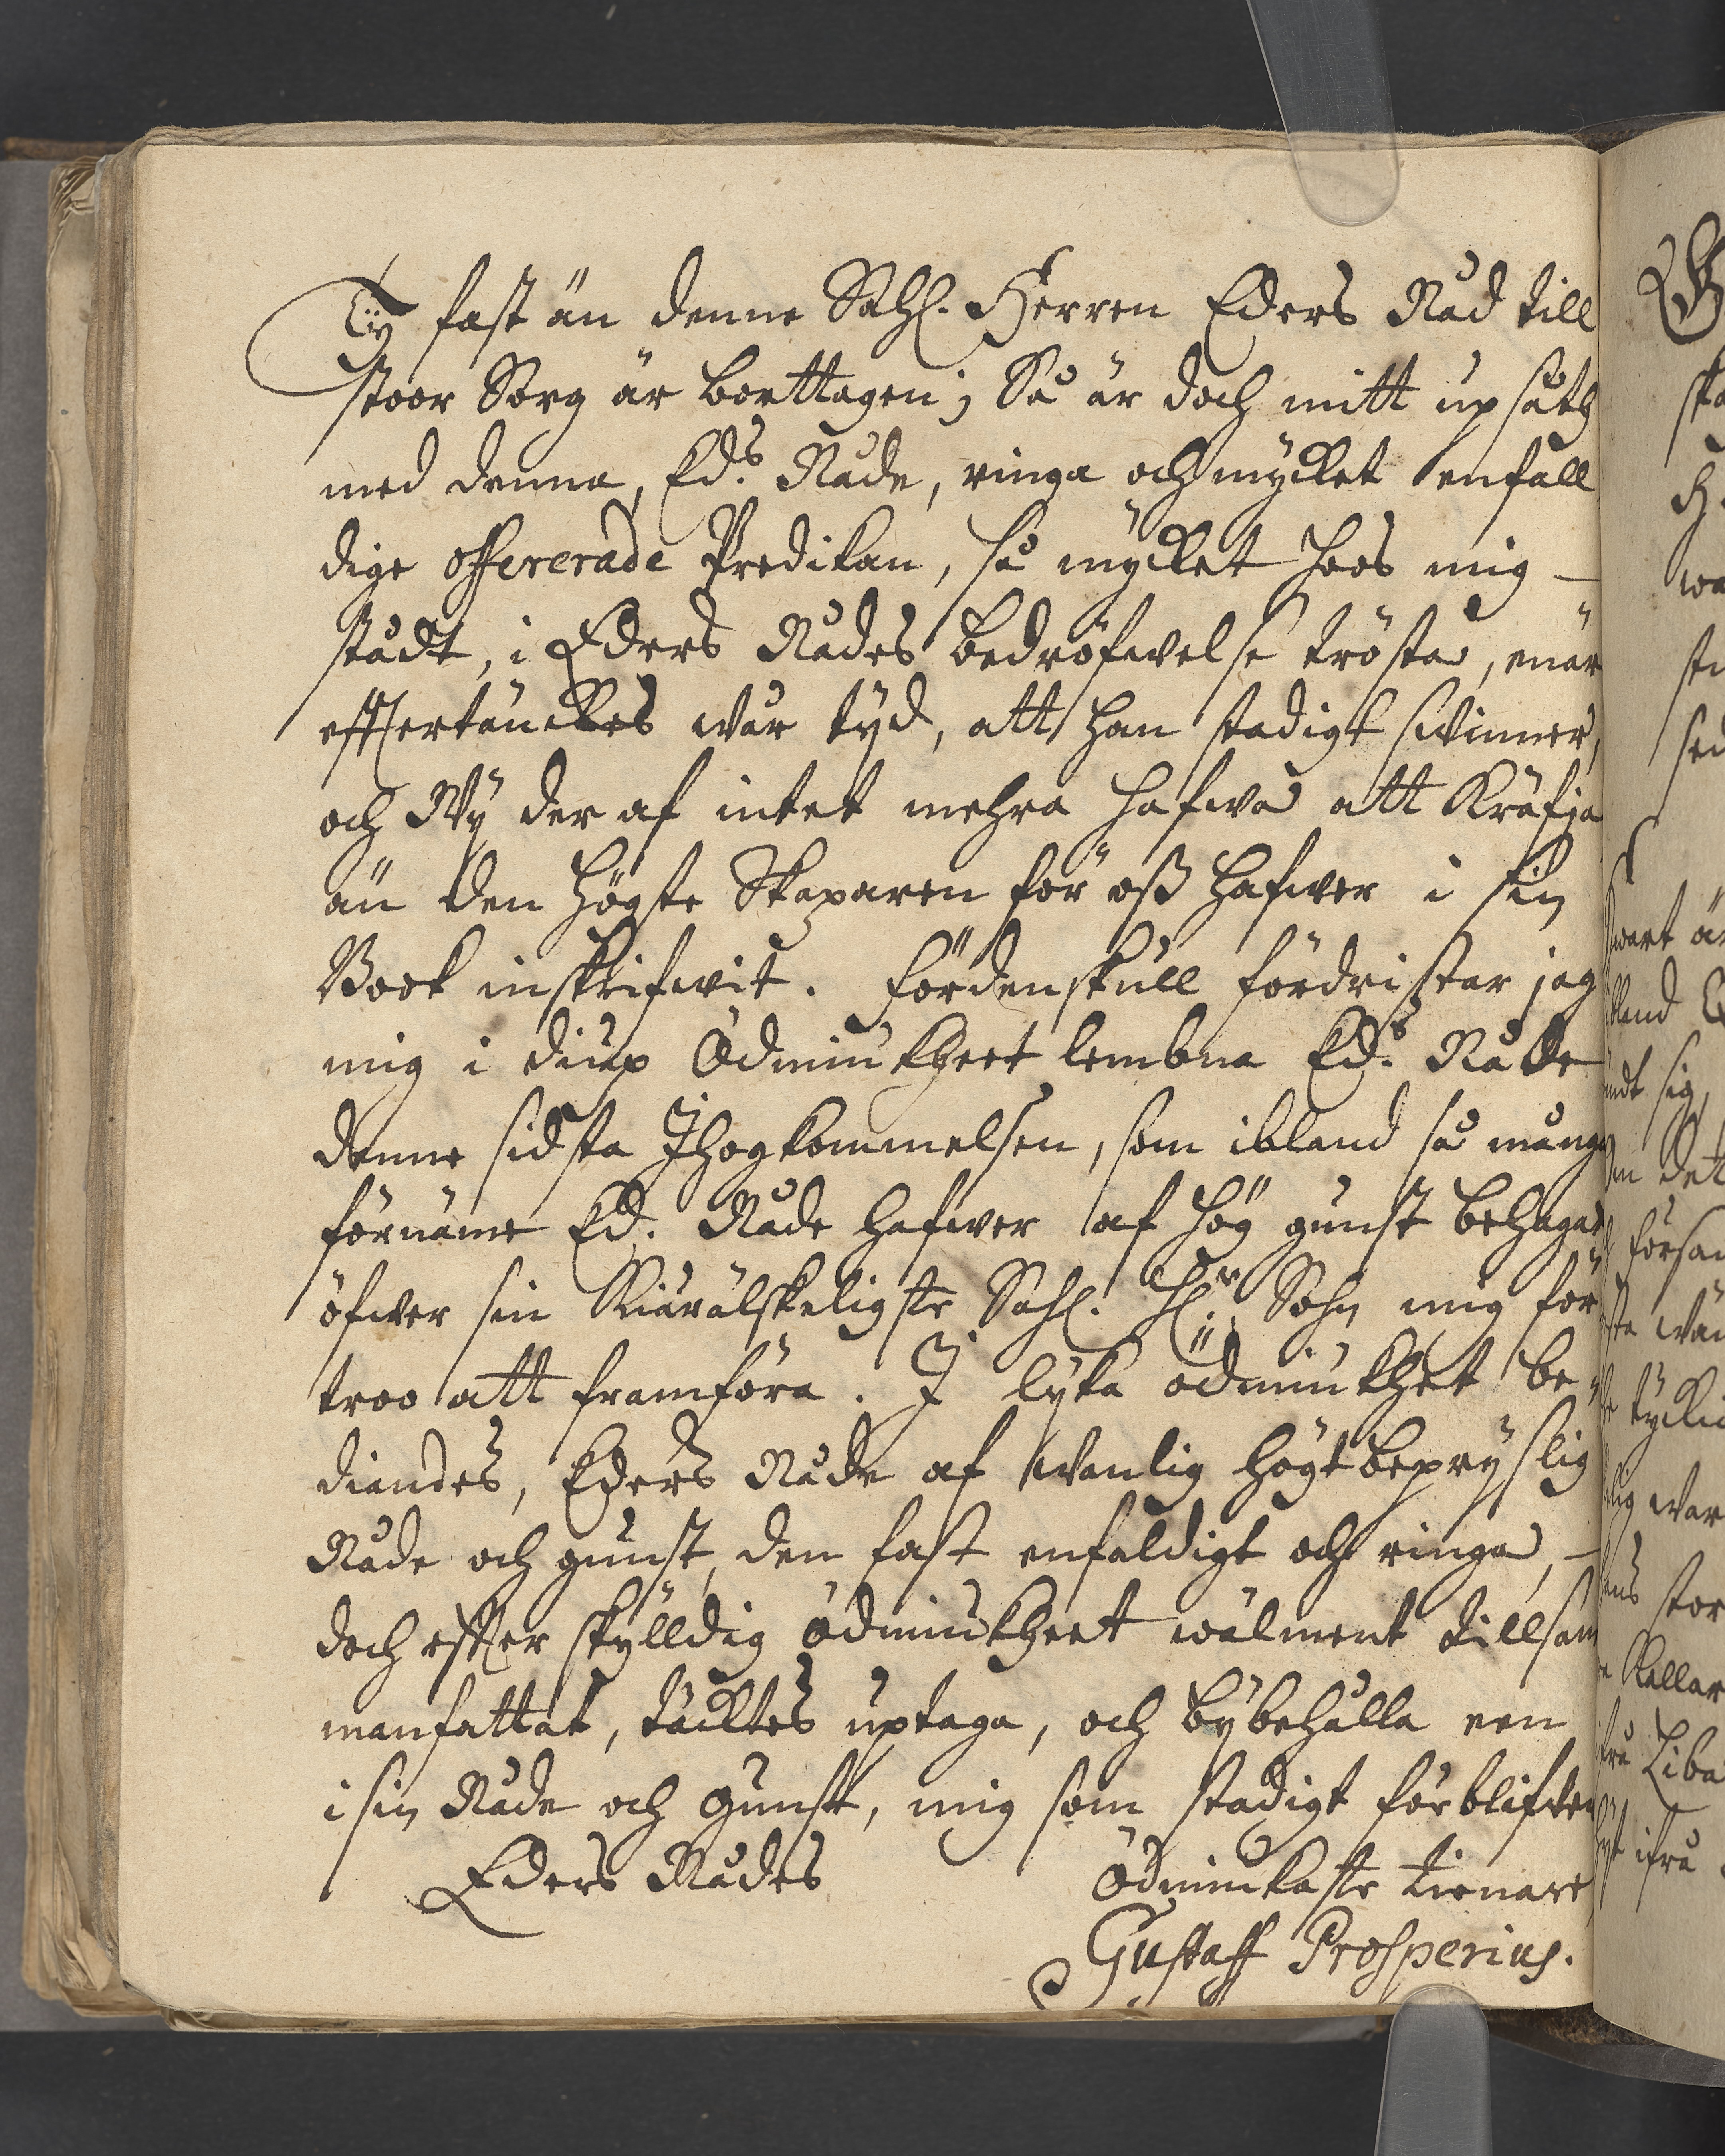 Ty fast än denne Sahl. Herren Eders Nåd till
stoor Sorg är borttagen; Så är doch mitt upsåth
med denna, Ed.s Nåde, ringa och mycket enfåll
dige offererade Predikan, så mycket hoos mig –
stådt, i Eders Nådes bedröfwelse trösta, enär
effterränckes wår tyd, att han stadigt swinner,
och Wy der af intet mehra hafwa att Kräfja
än den högste Skaparen för oß hafwer i sin
Book inskrifwit. Fördenskull fördristar jag
mig i diup Ödmiukheet lembna Ed.s Nåde
denne sidsta Ihogkommelsen, som ibland så många
förnäme Ed. Nåde hafwer af hög gunst behagat
öfwer sin Kiärälskeligste Sahl. H. Sohn mig för
troo att framföra. I lyka ödmiukhet be-
diandes, Eders Nåde af wanlig högtbepryslig
Nåde och gunst, den fast enfaldigt och ringa, –
doch effter skylldig ödmiukheet wälment tillsam
manfattat, täcktes uptaga, och bybehålla een
i sin Nåde och Gunst, mig som stadigt förblifwer
Eders Nådes Ödmiukaste tienare
Gustaff Prosperius.